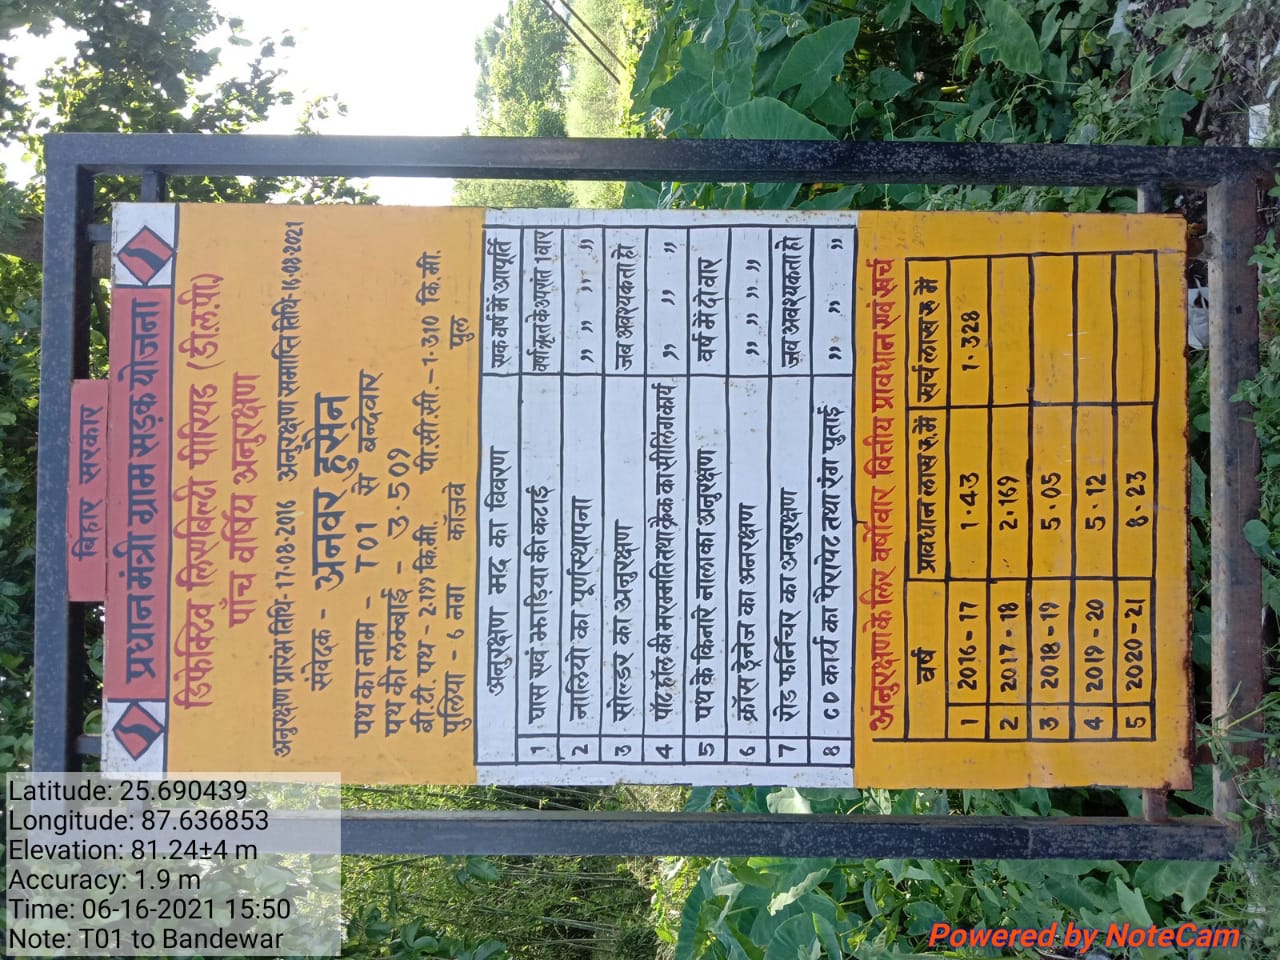 बिहार सरकार
प्रधान मंत्री ग्राम सड़क योजना
डिफेक्टिव लिएबिल्टी पीरियड (डी.ल.पी)
पाँच वर्षिय अनुरक्षण
अनुरक्षण प्रारंभ तिथि-17-08-2016 अनुरक्षण समाप्ति तिथि-16-08-2021
संवेदक - अनवर हुसेन
पथ का नाम - T01 से बन्देवार
पथ की लम्बाई - 3.509
बी.टी. पथ - 2.199 कि.मी. पी.सी.सी. - 1.310 कि.मी.
पुलिया - 6 नग कॉजवे पुल
अनुरक्षण मद का विवरण एक वर्ष में आपूर्ति
1 घास एवं झाड़िया की कटाई वर्षा ऋतु के उपरांत 1 वार
2 नालियो का पूर्णस्थापना " " " "
3 सोल्डर का अनुरक्षण जब अवश्यकता हो
4 पॉट हॉल की मरम्मति तथा क्रैक का सीलिंग कार्य " " "
5 पथ के किनारे नाला का अनुरक्षण वर्ष में दो वार
6 क्रॉस ड्रेनेज का अनरक्षण " " " "
7 रोड फर्निचर का अनुरक्षण जव अवश्यकता हो
8 C D कार्य का पैरापेट तथा रंग पुताई " " "
अनुरक्षण के लिए वर्षावार वित्तीय प्रावधान एवं खर्च
वर्ष प्रावधान लाख रू.में खर्च लाख रू में
1 2016-17 1.43 1.328
2 2017-18 2.169
3 2018-19 5.05
4 2019-20 5.12
5 2020-21 8.23
Latitude: 25.690439
Longitude: 87.636853
Elevation: 81.24±4 m
Accuracy: 1.9 m
Time: 06-16-2021 15:50
Note: T01 to Bandewar
Powered by NoteCam